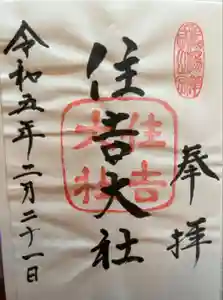 奉拝
住吉大社
住吉大社
令和五年二月二十一日